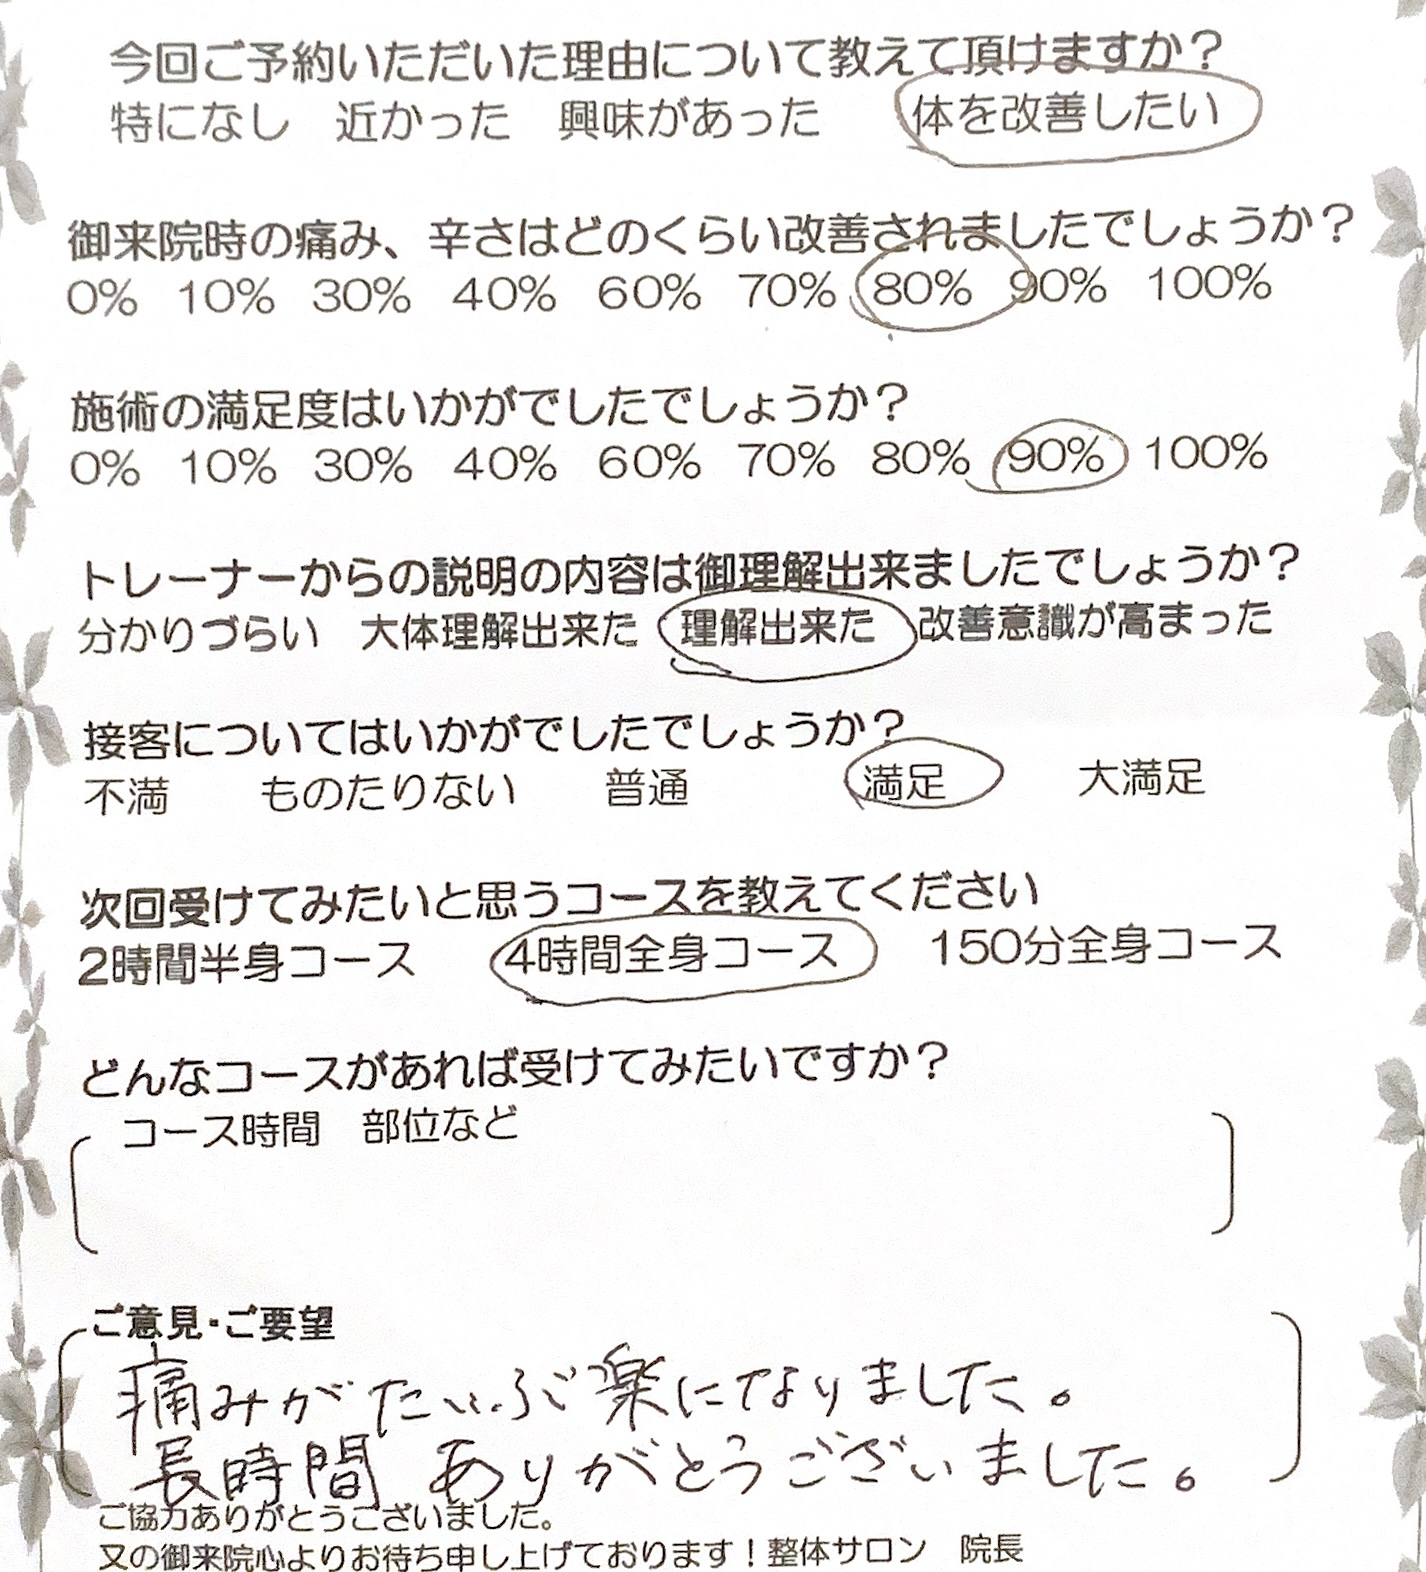 今回ご予約いただいた理由について教えて頂けますか？
特になし　近かった　興味があった　体を改善したい
御来院時の痛み、辛さはどのくらい改善されましたでしょうか？
0%　10%　30%　40%　60%　70%　80%　90%　100%
施術の満足度はいかがでしたでしょうか？
0%　10%　30%　40%　60%　70%　80%　90%　100%
トレーナーからの説明の内容は御理解出来ましたでしょうか？
分かりづらい　大体理解出来た　理解出来た　改善意識が高まった
接客についてはいかがでしたでしょうか？
不満　ものたりない　普通　満足　大満足
次回受けてみたいと思うコースを教えてください
2時間半身コース　4時間全身コース　150分全身コース
どんなコースがあれば受けてみたいですか？
コース時間　部位など
ご意見・ご要望
痛みがたいぶ楽になりました。
長時間 ありがとうございました。
ご協力ありがとうございました。
又の御来院心よりお待ち申し上げております！整体サロン　院長